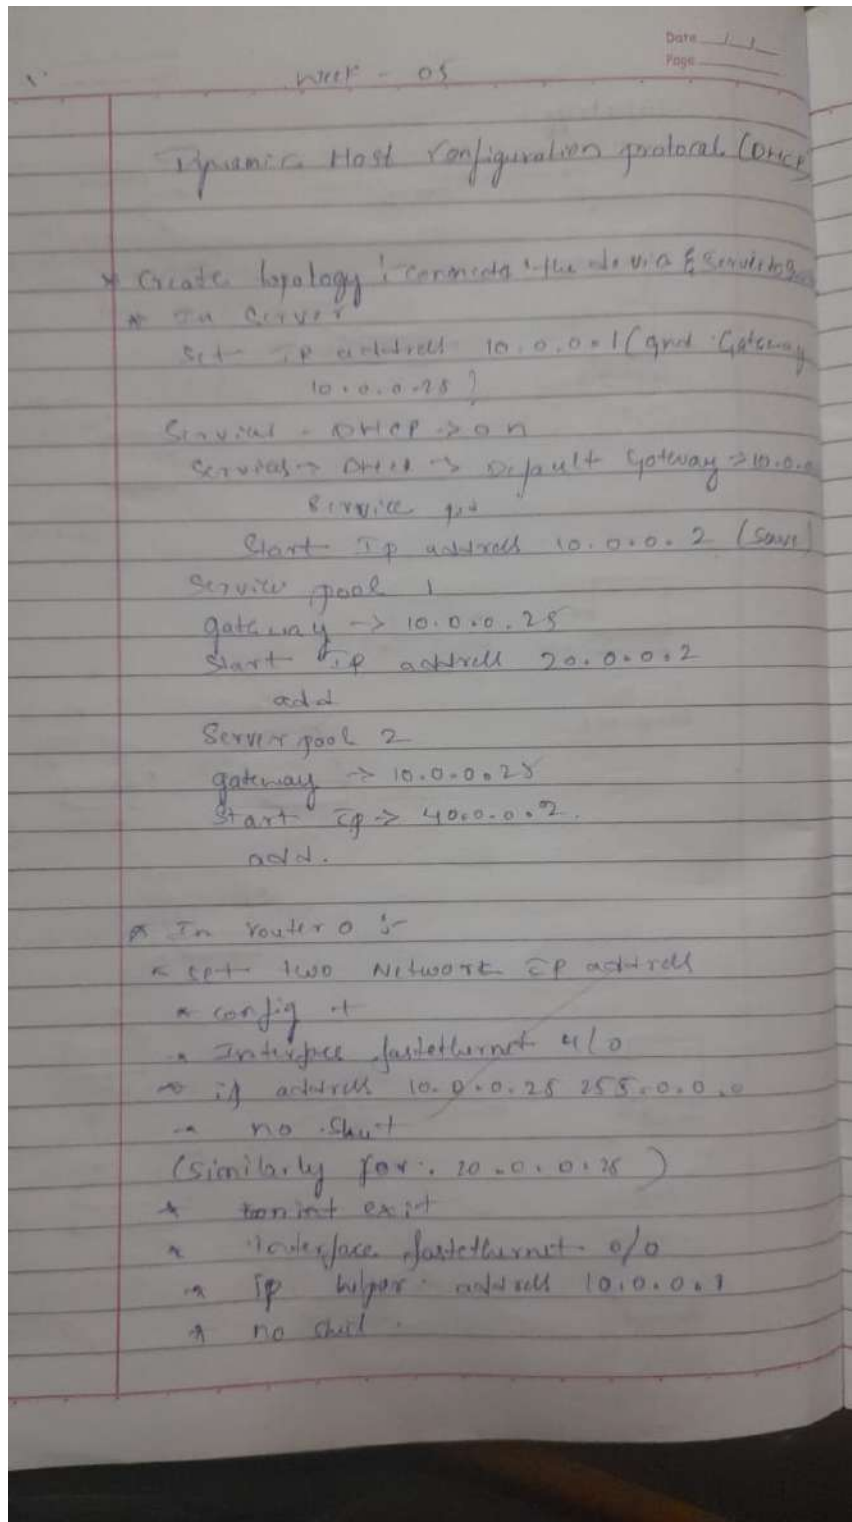 Date
Page
week - 05
Dynamic Host Configuration protocal (DHCP)
* Create topology connects the & 
* In Server
Set IP address 10.0.0.1 (and Gateway
10.0.0.25)
Services - DHCP -> on
Services -> DHCP -> Default Gateway -> 10.0.0
Service
Start Ip address 10.0.0.2 (Save)
Service pool 1
gateway -> 10.0.0.25
Start IP address 20.0.0.2
add
Server pool 2
gateway -> 10.0.0.25
Start Ip -> 40.0.0.2.
add.
* In router 0 :-
* set two Network IP address
* config t
* Interface fastethernet 4/0
* ip address 10.0.0.25 255.0.0.0
* no shut
(Similarly for. 20.0.0.25)
* exit
* interface fastethernet 0/0
* Ip helper address 10.0.0.1
* no shut.